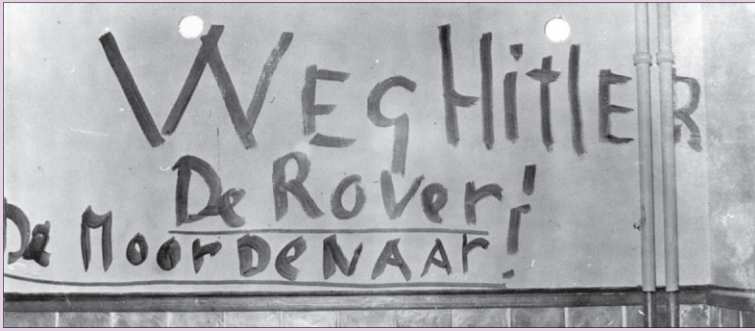 WEg HitlER
De Rover!
De MoorDeNAAr!